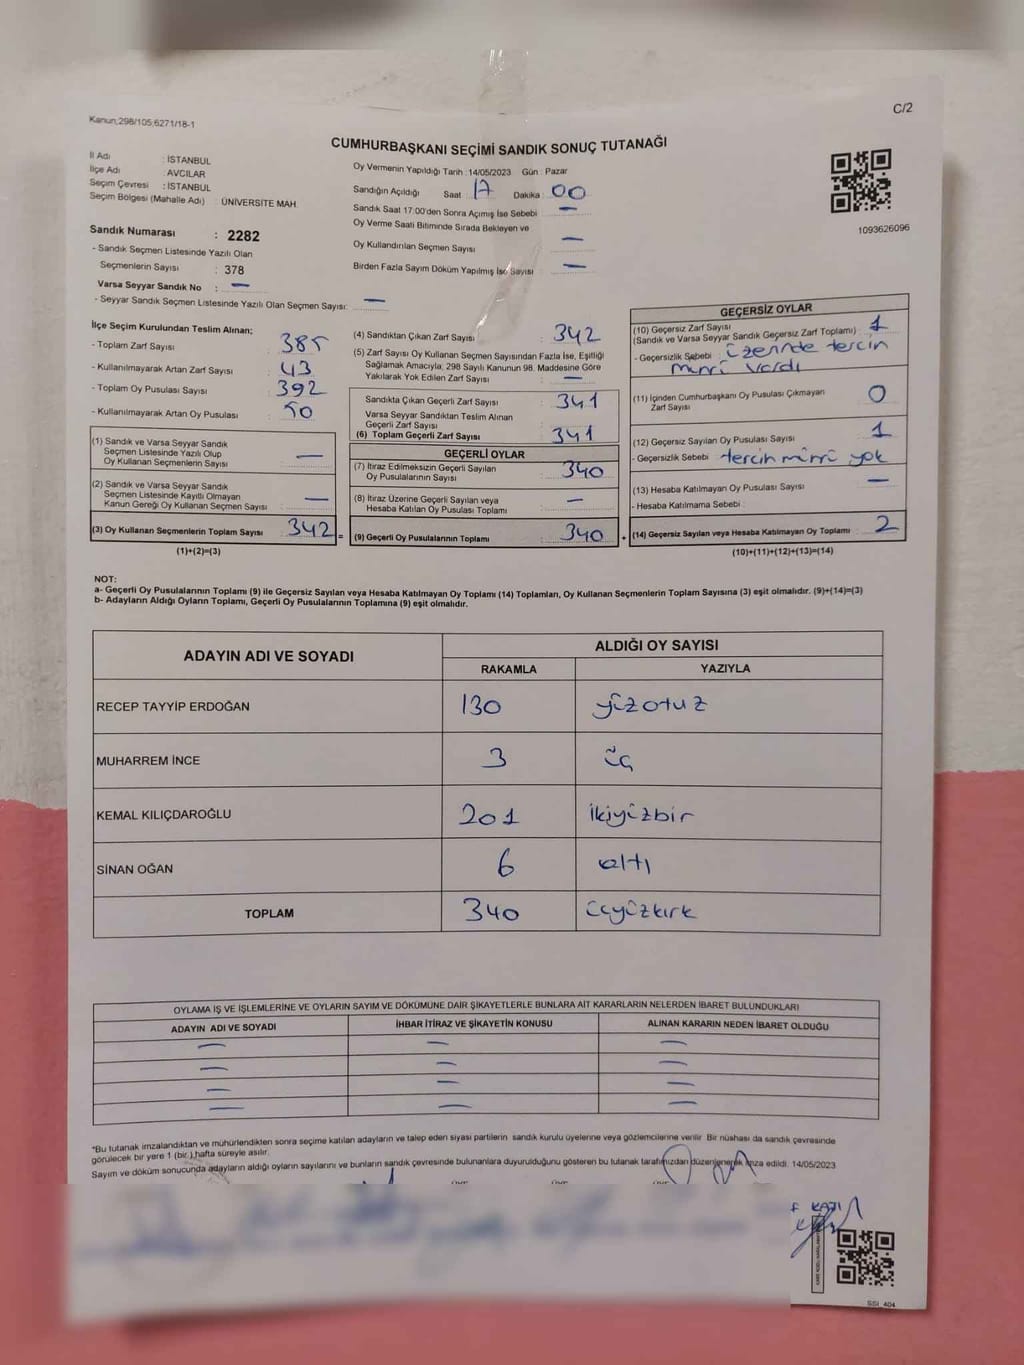 C/2
Kanun;298/105;6271/18-1
CUMHURBAŞKANI SEÇİMİ SANDIK SONUÇ TUTANAĞI
İl Adı : İSTANBUL
İlçe Adı : AVCILAR
Seçim Çevresi : İSTANBUL
Seçim Bölgesi (Mahalle Adı) : ÜNİVERSİTE MAH.
Sandık Numarası : 2282
- Sandık Seçmen Listesinde Yazılı Olan
Seçmenlerin Sayısı : 378
Varsa Seyyar Sandık No : —
- Seyyar Sandık Seçmen Listesinde Yazılı Olan Seçmen Sayısı: —
Oy Vermenin Yapıldığı Tarih : 14/05/2023 Gün : Pazar
Sandığın Açıldığı Saat : 17 Dakika : 00
Sandık Saat 17:00'den Sonra Açımış İse Sebebi : —
Oy Verme Saati Bitiminde Sırada Bekleyen ve
Oy Kullandırılan Seçmen Sayısı : —
Birden Fazla Sayım Döküm Yapılmış İse Sayısı : —
1093626096
İlçe Seçim Kurulundan Teslim Alınan;
- Toplam Zarf Sayısı : 385
- Kullanılmayarak Artan Zarf Sayısı : 43
- Toplam Oy Pusulası Sayısı : 392
- Kullanılmayarak Artan Oy Pusulası : 50
(1) Sandık ve Varsa Seyyar Sandık
Seçmen Listesinde Yazılı Olup
Oy Kullanan Seçmenlerin Sayısı : —
(2) Sandık ve Varsa Seyyar Sandık
Seçmen Listesinde Kayıtlı Olmayan
Kanun Gereği Oy Kullanan Seçmen Sayısı : —
(3) Oy Kullanan Seçmenlerin Toplam Sayısı : 342 =
(1)+(2)=(3)
(4) Sandıktan Çıkan Zarf Sayısı : 342
(5) Zarf Sayısı Oy Kullanan Seçmen Sayısından Fazla İse, Eşitliği
Sağlamak Amacıyla; 298 Sayılı Kanunun 98. Maddesine Göre
Yakılarak Yok Edilen Zarf Sayısı : —
Sandıkta Çıkan Geçerli Zarf Sayısı : 341
Varsa Seyyar Sandıktan Teslim Alınan
Geçerli Zarf Sayısı
(6) Toplam Geçerli Zarf Sayısı : 341
GEÇERLİ OYLAR
(7) İtiraz Edilmeksizin Geçerli Sayılan
Oy Pusulalarının Sayısı : 340
(8) İtiraz Üzerine Geçerli Sayılan veya
Hesaba Katılan Oy Pusulası Toplamı : —
(9) Geçerli Oy Pusulalarının Toplamı : 340 +
GEÇERSİZ OYLAR
(10) Geçersiz Zarf Sayısı
(Sandık ve Varsa Seyyar Sandık Geçersiz Zarf Toplamı) : 1
- Geçersizlik Sebebi : üzerinde tercih
mührü vardı
(11) İçinden Cumhurbaşkanı Oy Pusulası Çıkmayan
Zarf Sayısı : 0
(12) Geçersiz Sayılan Oy Pusulası Sayısı : 1
- Geçersizlik Sebebi : tercih mührü yok
(13) Hesaba Katılmayan Oy Pusulası Sayısı : —
- Hesaba Katılmama Sebebi :
(14) Geçersiz Sayılan veya Hesaba Katılmayan Oy Toplamı : 2
(10)+(11)+(12)+(13)=(14)
NOT:
a- Geçerli Oy Pusulalarının Toplamı (9) ile Geçersiz Sayılan veya Hesaba Katılmayan Oy Toplamı (14) Toplamları, Oy Kullanan Seçmenlerin Toplam Sayısına (3) eşit olmalıdır. (9)+(14)=(3)
b- Adayların Aldığı Oyların Toplamı, Geçerli Oy Pusulalarının Toplamına (9) eşit olmalıdır.
ADAYIN ADI VE SOYADI ALDIĞI OY SAYISI
RAKAMLA YAZIYLA
RECEP TAYYİP ERDOĞAN 130 yüzotuz
MUHARREM İNCE 3 üç
KEMAL KILIÇDAROĞLU 201 ikiyüzbir
SİNAN OĞAN 6 altı
TOPLAM 340 üçyüzkırk
OYLAMA İŞ VE İŞLEMLERİNE VE OYLARIN SAYIM VE DÖKÜMÜNE DAİR ŞİKAYETLERLE BUNLARA AİT KARARLARIN NELERDEN İBARET BULUNDUKLARI
ADAYIN ADI VE SOYADI İHBAR İTİRAZ VE ŞİKAYETİN KONUSU ALINAN KARARIN NEDEN İBARET OLDUĞU
— — —
— — —
— — —
— — —
*Bu tutanak imzalandıktan ve mühürlendikten sonra seçime katılan adayların ve talep eden siyasi partilerin sandık kurulu üyelerine veya gözlemcilerine verilir. Bir nüshası da sandık çevresinde
görülecek bir yere 1 (bir ) hafta süreyle asılır.
Sayım ve döküm sonucunda adayların aldığı oyların sayılarını ve bunların sandık çevresinde bulunanlara duyurulduğunu gösteren bu tutanak tarafımızdan düzenlenerek imza edildi. 14/05/2023
SSI 404